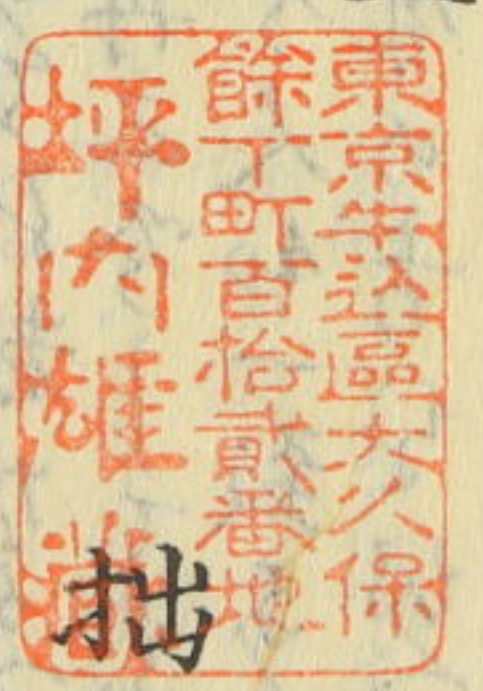 東京牛込區大久保
餘丁町百拾貳番地
坪内雄藏
拙